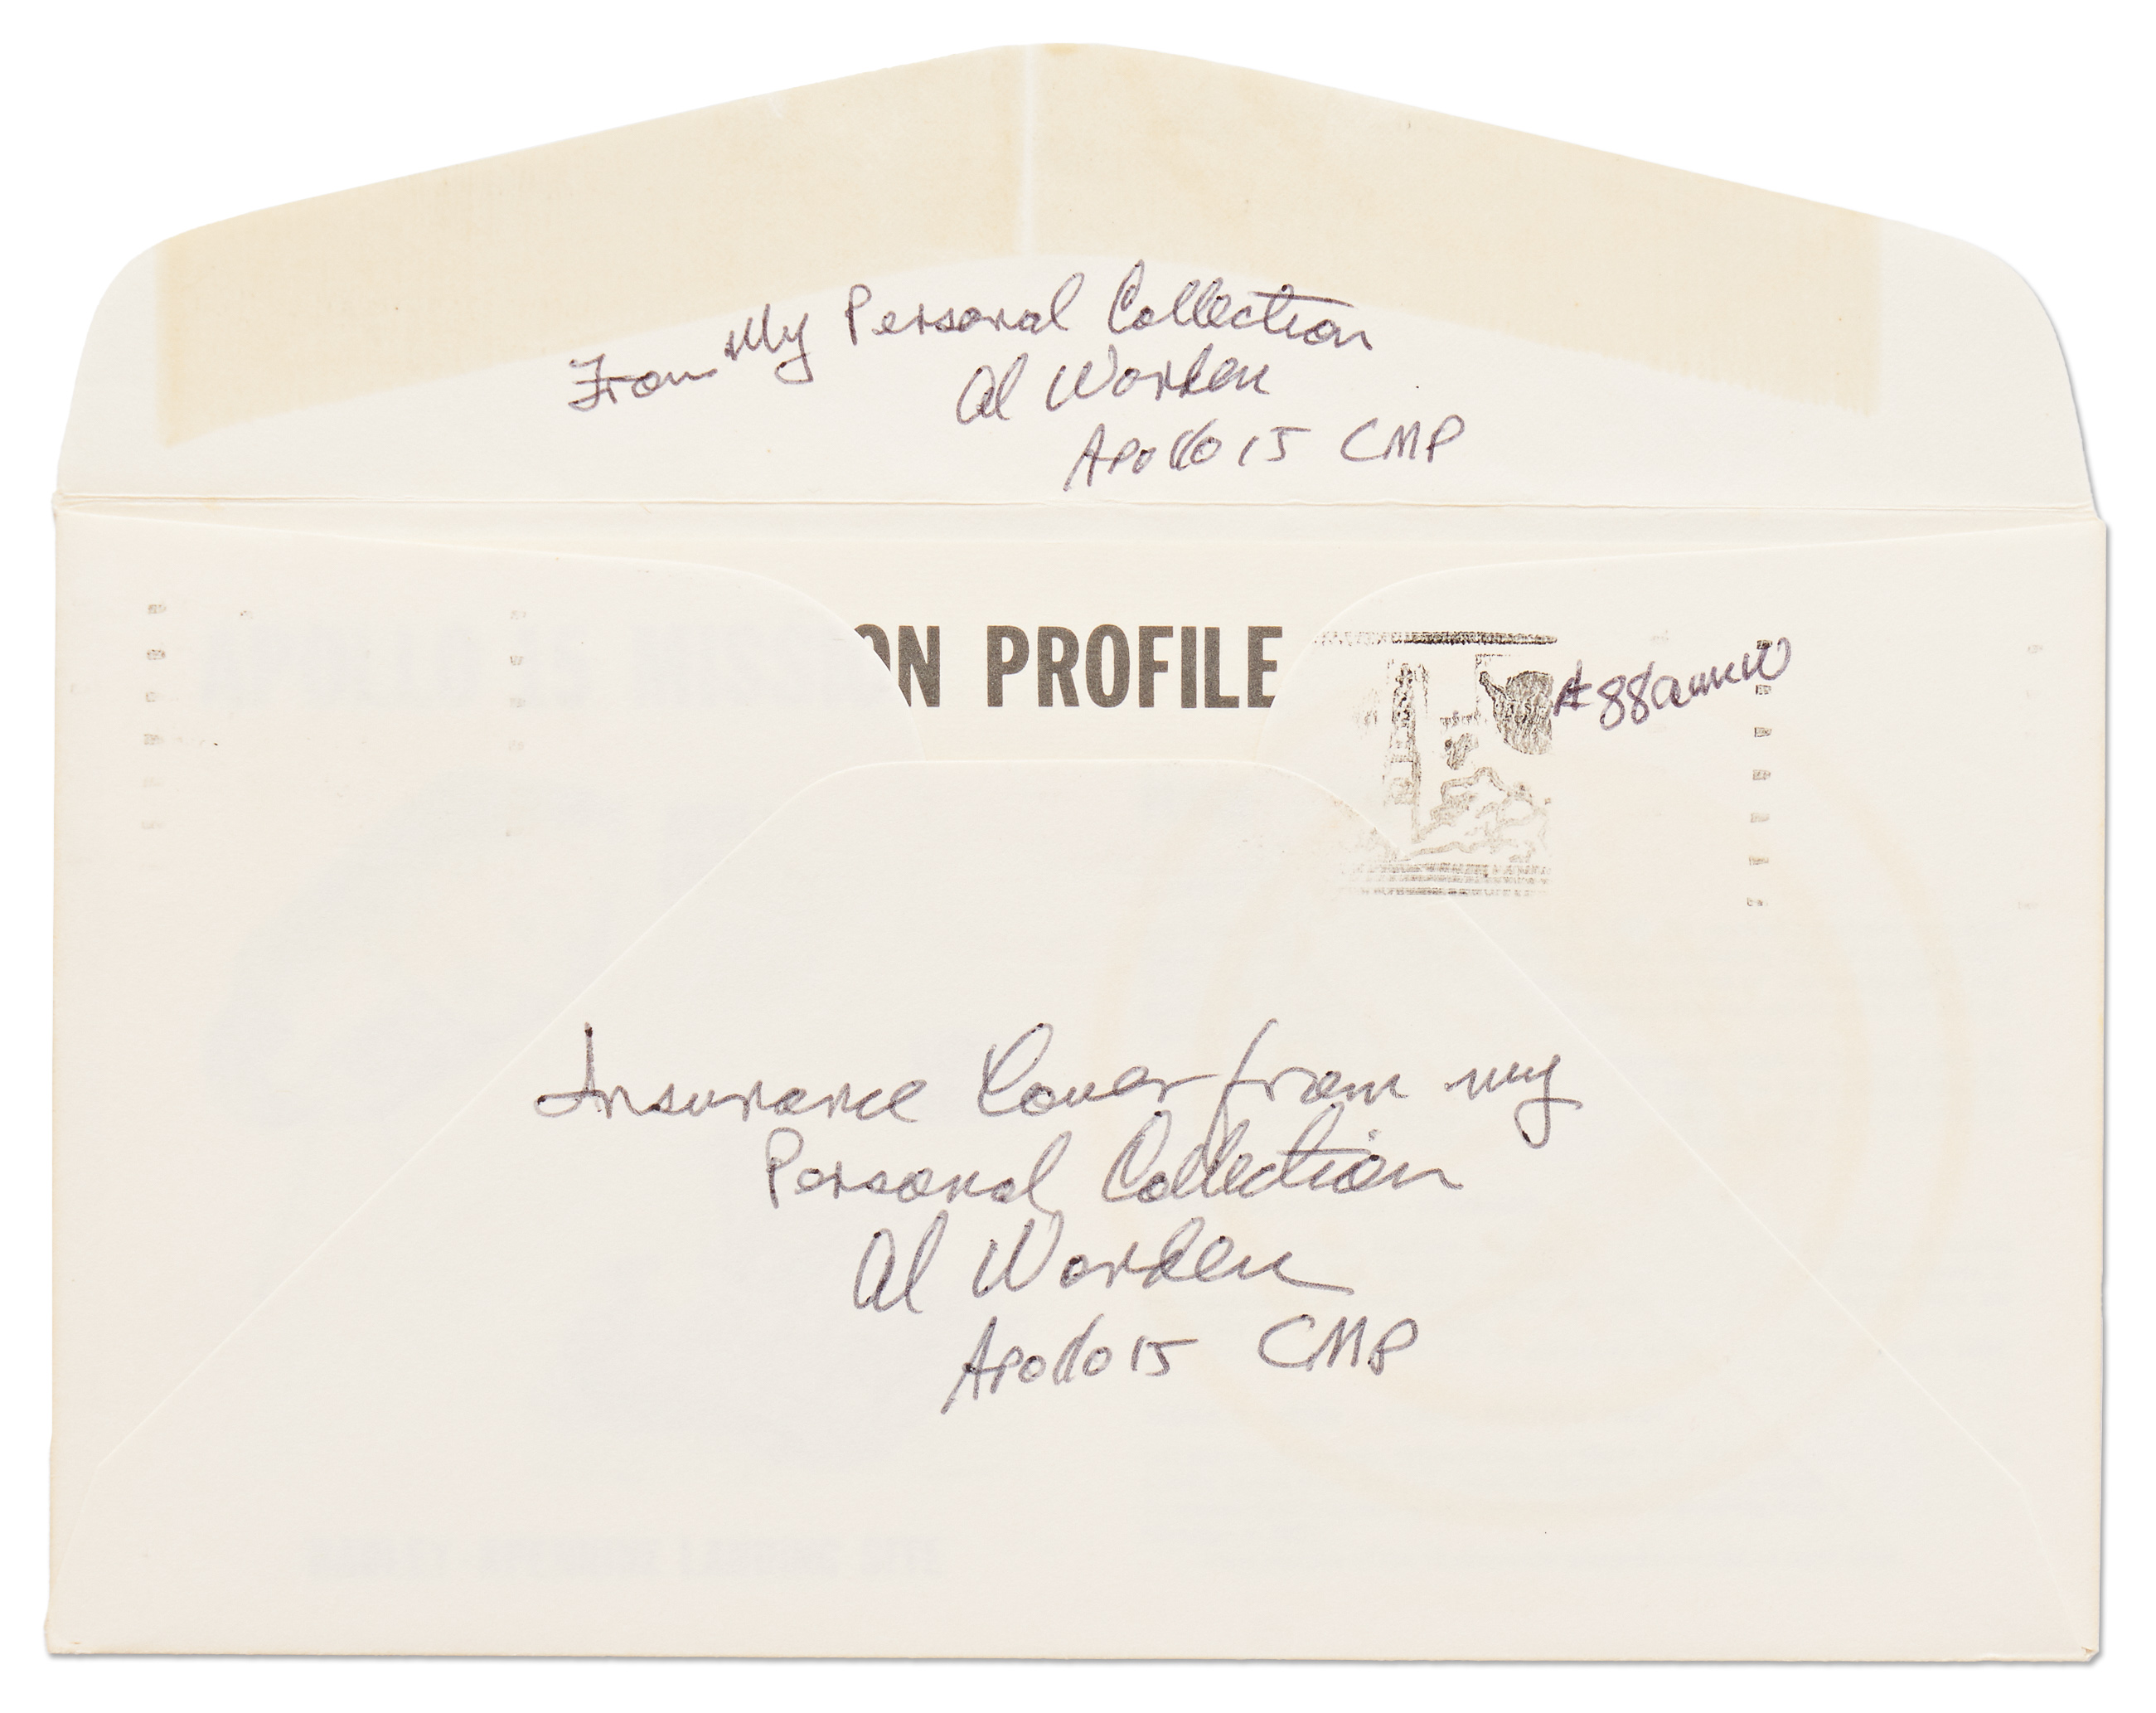 From My Personal Collection
Al Worden
Apollo 15 CMP
ON PROFILE
Insurance Cover from my
Personal Collection
Al Worden
Apollo 15 CMP